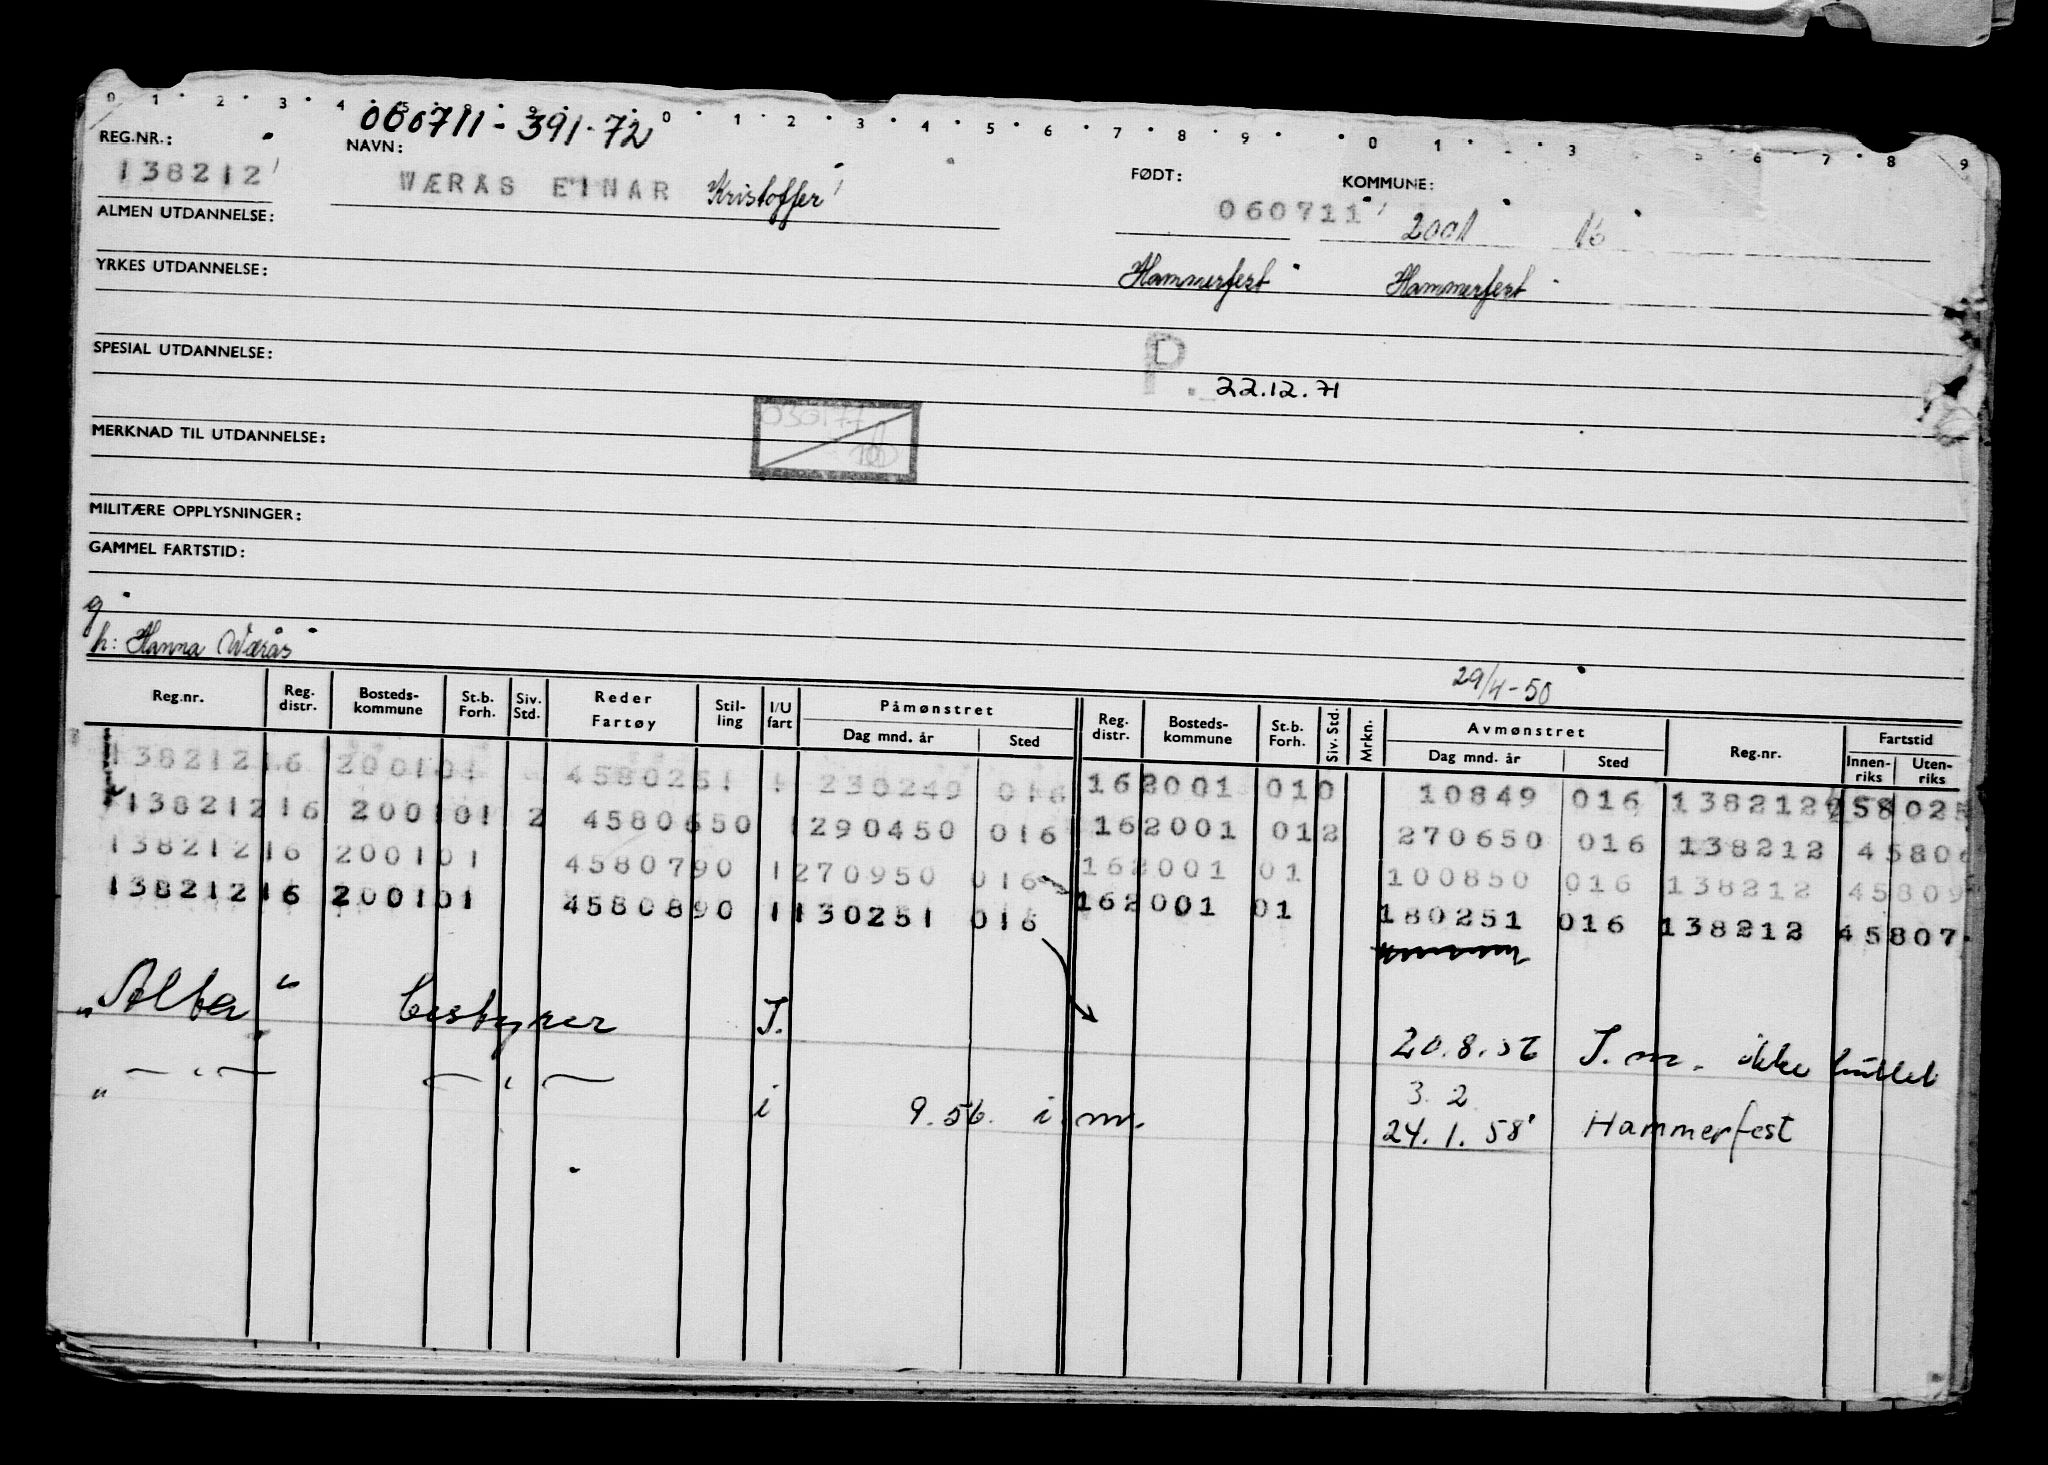 0 1 2 3 4 5 0 1 2 3 4 5 6 7 8 9 0 1 3 5 6 7 8 9
060711-391-72
REG.NR.: NAVN: FØDT: KOMMUNE:
138212 WÆRÅS EINAR Kristoffer 060711 2001 16
ALMEN UTDANNELSE:
YRKES UTDANNELSE: Hammerfest Hammerfest
SPESIAL UTDANNELSE:
P. 22.12.71
MERKNAD TIL UTDANNELSE:
MILITÆRE OPPLYSNINGER:
GAMMEL FARTSTID:
g
h: Hanna Wærås
29/4-50
Reg.nr. Reg. distr. Bosteds-kommune St.b. Forh. Siv. Std. Reder Fartøy Stil-ling I/U fart Påmønstret Dag mnd. år Sted Reg. distr. Bosteds-kommune St.b. Forh. Siv. Std. Mrkn. Avmønstret Dag mnd. år Sted Reg.nr. Fartstid Innen-riks Uten-riks
138212 16 2001 01 4580251 1 230249 016 16 2001 01 0 10849 016 138212 58025
138212 16 2001 01 2 4580650 1 290450 016 16 2001 01 2 270650 016 138212 45806
138212 16 2001 01 4580790 1 270950 016 16 2001 01 100850 016 138212 45809
138212 16 2001 01 4580890 1 130251 016 16 2001 01 180251 016 138212 45807
"Alta" bestyrer I. 20.8.56 I.m. ikke
" — " — — " — i 9.56. i.m. 3. 2
24.1.58 Hammerfest